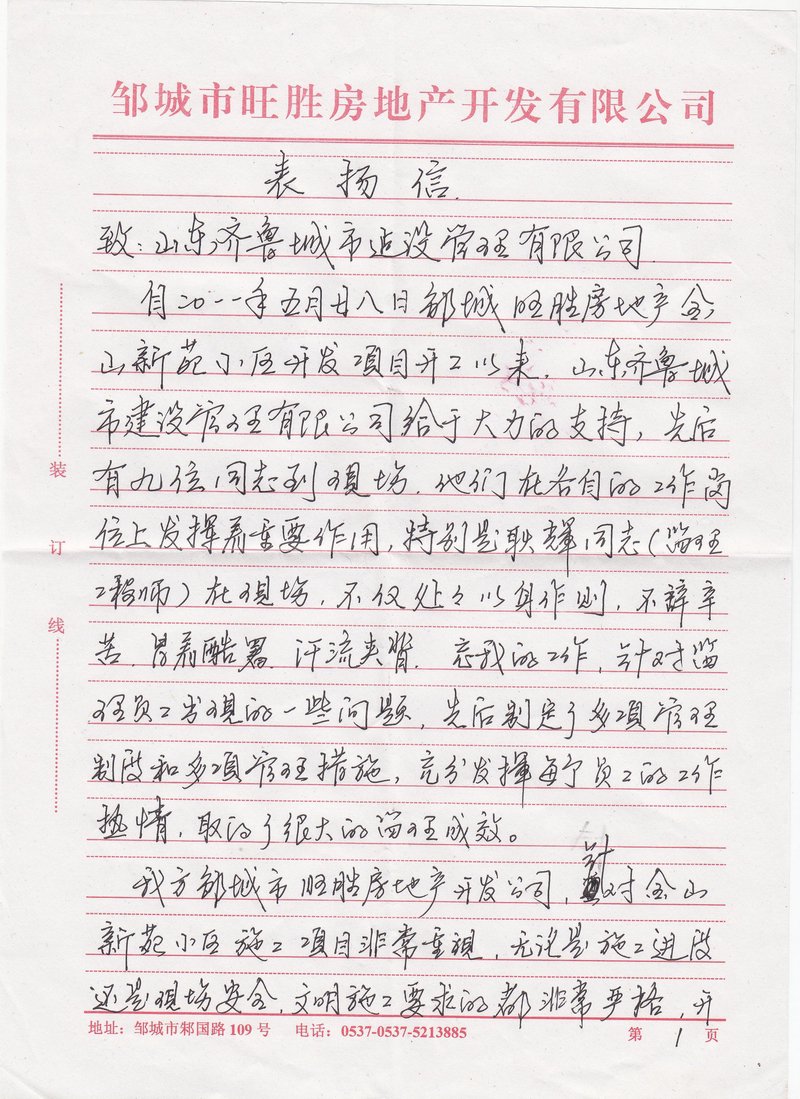 邹城市旺胜房地产开发有限公司
表扬信.
致:山东齐鲁城市建设管理有限公司.
自二0一一年五月廿八日邹城旺胜房地产金
山新苑小区开发项目开工以来,山东齐鲁城
市建设管理有限公司给于大力的支持,先后
有九位同志到现场.他们在各自的工作岗
位上发挥着重要作用,特别是耿辉同志(监理
工程师)在现场,不仅处々以身作则,不辞辛
苦.冒着酷暑.汗流夹背.忘我的工作,针对监
理员工出现的一些问题,先后制定了多项管理
制度和多项管理措施,充分发挥每个员工的工作
热情,取得了很大的监理成效。
我方邹城市旺胜房地产开发公司,针对金山
新苑小区施工项目非常重视,无论是施工进度
还是现场安全,文明施工要求的都非常严格,开
装
订
线
地址:邹城市邾国路109号 电话:0537-0537-5213885 第1页